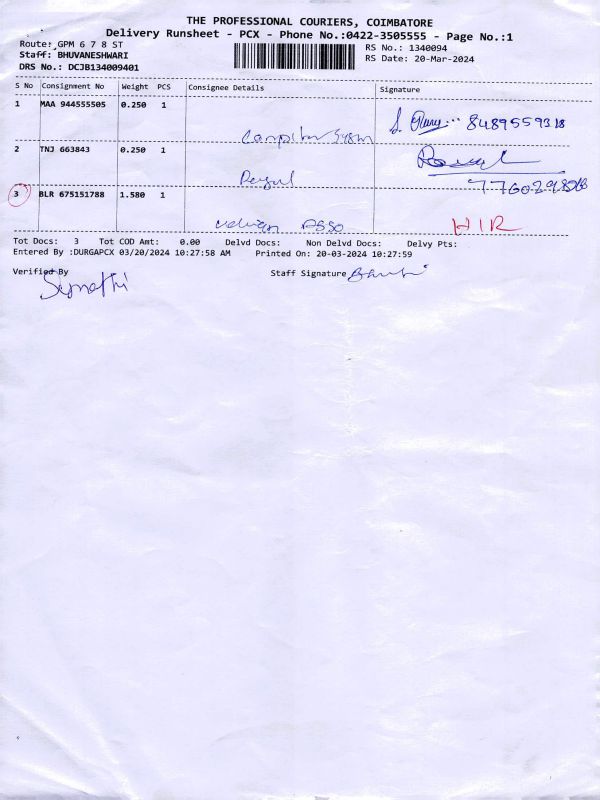 THE PROFESSIONAL COURIERS, COIMBATORE
Delivery Runsheet - PCX - Phone No.:0422-3505555 - Page No.:1
Route: GPM 6 7 8 ST RS No.: 1340094
Staff: BHUVANESHWARI RS Date: 20-Mar-2024
DRS No.: DCJB134009401
S No Consignment No Weight PCS Consignee Details Signature
1 MAA 944555505 0.250 1
2 TNJ 663843 0.250 1
3 BLR 675151788 1.580 1
HIR
Tot Docs: 3 Tot COD Amt: 0.00 Delvd Docs: Non Delvd Docs: Delvy Pts:
Entered By :DURGAPCX 03/20/2024 10:27:58 AM Printed On: 20-03-2024 10:27:59
Verified By Staff Signature